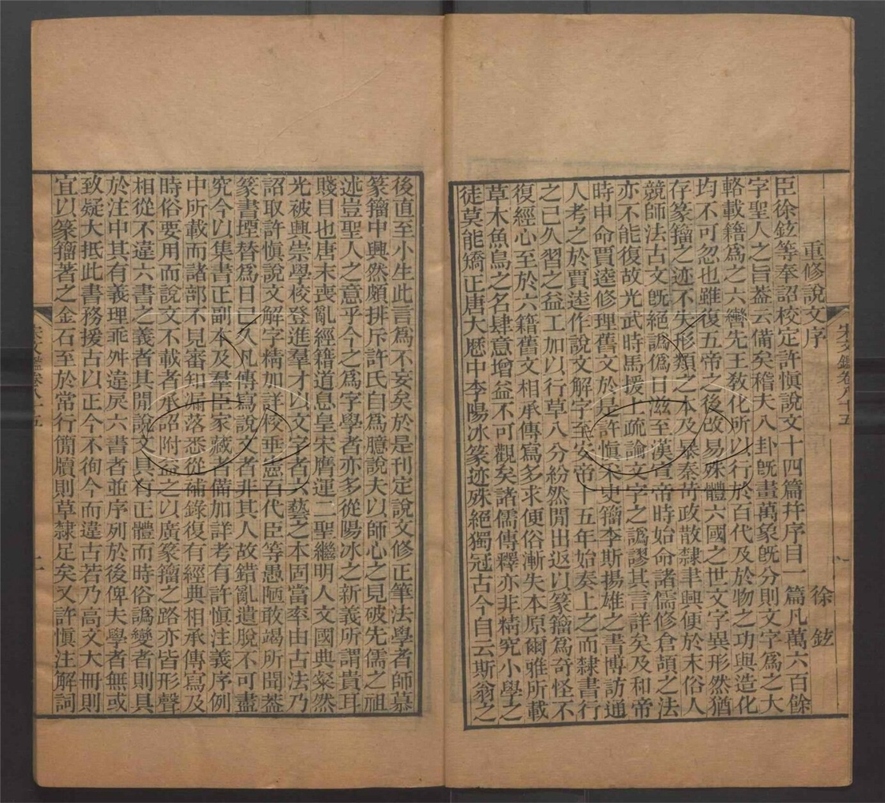 重修說文序
徐鉉
臣徐鉉等奉詔校定許愼說文十四篇并序目一篇凡萬六百餘
字聖人之旨葢云備矣稽夫八卦旣畫萬象旣分則文字爲之大
輅載籍爲之六轡先王敎化所以行於百代及於物之功與造化
均不可忽也雖復五帝之後改易殊體六國之世文字異形然猶
存篆籀之迹不失形類之本及暴秦苛政散隷聿興便於末俗人
競師法古文旣絕譌僞日滋至漢宣帝時始命諸儒修倉頡之法
亦不能復故光武時馬援上疏論文字之譌謬其言詳矣及和帝
時申命賈逵修理舊文於是許愼采史籀李斯揚雄之書博訪通
人考之於賈逵作說文解字至安帝十五年始奏上之而隸書行
之已久習之益工加以行草八分紛然閒出返以篆籀爲奇怪不
復經心至於六籍舊文相承傳寫多求便俗漸失本原爾雅所載
草木魚鳥之名肆意增益不可觀矣諸儒傳釋亦非精究小學之
徒莫能矯正唐大曆中李陽冰篆迹殊絕獨冠古今自云斯翁之
後直至小生此言爲不妄矣於是刊定說文修正筆法學者師慕
篆籀中興然頗排斥許氏自爲臆說夫以師心之見破先儒之祖
述豈聖人之意乎今之爲字學者亦多從陽冰之新義所謂貴耳
賤目也唐末喪亂經籍道息皇宋膺運二聖繼明人文國典粲然
光被興崇學校登進羣才以文字者六藝之本固當率由古法乃
詔取許愼說文解字精加詳校垂憲百代臣等愚陋敢竭所聞葢
篆書堙替爲日已久凡傳寫說文者皆非其人故錯亂遺脫不可盡
究今以集書正副本及羣臣家藏者備加詳考有許愼注義序例
中所載而諸部不見審知漏落悉從補錄復有經典相承傳寫及
時俗要用而說文不載者承詔附益之以廣篆籀之路亦皆形聲
相從不違六書之義者其閒說文具有正體而時俗譌變者則具
於注中其有義理乖舛違戾六書者並序列於後俾夫學者無或
致疑大抵此書務援古以正今不徇今而違古若乃高文大冊則
宜以篆籀著之金石至於常行簡牘則草隸足矣又許愼注解詞